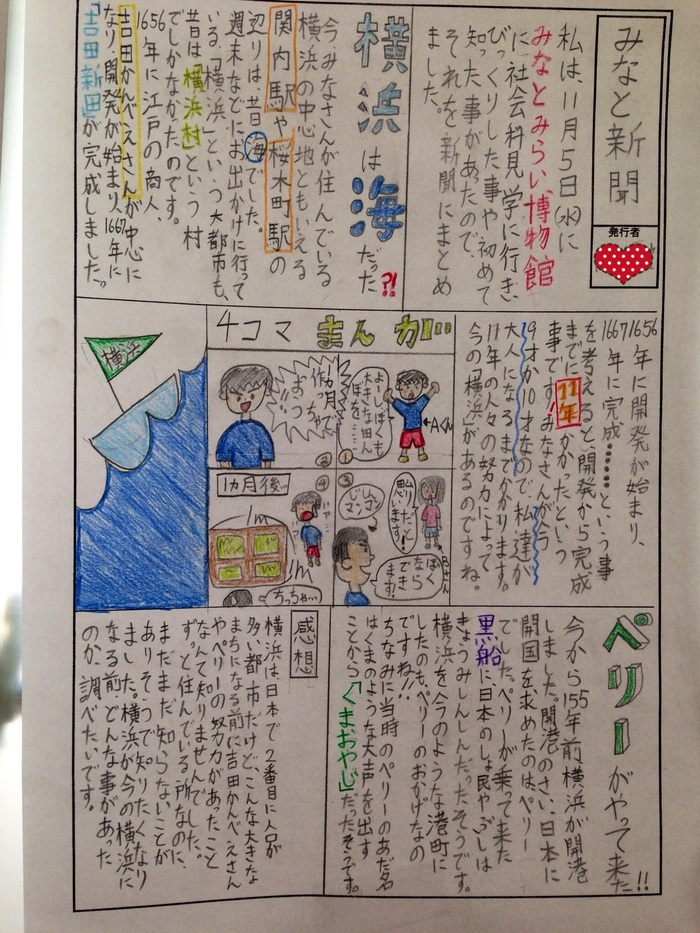 みなと新聞
発行者
私は、11月5日(水)に
みなとみらい、博物館
に社会科見学に行き、
びっくりした事や、初めて
知った事があったので、
それを新聞にまとめ
ました。
横浜は海だった?!
今、みなさんが住んでいる
横浜の中心地ともいえる
関内駅や桜木町駅の
辺りは、昔海でした。
週末などにお出かけに行って
いる、「横浜」という大都市も、
昔は「横浜村」という村
でしかなかったのです。
1656年に江戸の商人、
吉田かんべえさんが中心に
なり、開発が始まり、1667年に
「吉田新田」が完成しました。
1656年に開発が始まり、
1667年に完成……という事
を考えると、開発から完成
までに11年かかったという
事です!みなさんがもう
9才か10才なので、私達が
大人になるまでかかります。
11年の人々の努力によって
今の「横浜」があるのですね。
4コマまんが
①
よーし、ぼくも
大きな田んぼを……
←Aくん
②
1カ月で
作っちゃ
おっ!!
③
ムリだと
思います!
Bさん
じしん
マンマン
ぼく
なら
でき
ます!
④
1カ月後…
1m
1m
ちっちゃ…
ペリーがやって来た!!
今から155年前横浜が開港
しました。開港のさい、日本に
開国を求めたのは、ペリー
でした。ペリーが乗って来た
黒船に日本のしょ民やぶしは
きょうみしんしんだったそうです。
横浜を今のような港町に
したのも、ペリーのおかげなの
ですね!!
ちなみに当時のペリーのあだ名
はくまのような大声を出す
ことから「くまおやじ」だったそうです。
感想
横浜は日本で2番目に人口が
多い都市だけど、こんな大きな
まちになる前に吉田かんべえさん
やペリーの努力があったこと
なんて知りませんでした。
ずっと住んでいる所なのに、
まだまだ知らないことが
ありそうで知りたくなり
ました。横浜が今の横浜に
なる前、どんな事があった
のか、調べたいです。
横浜